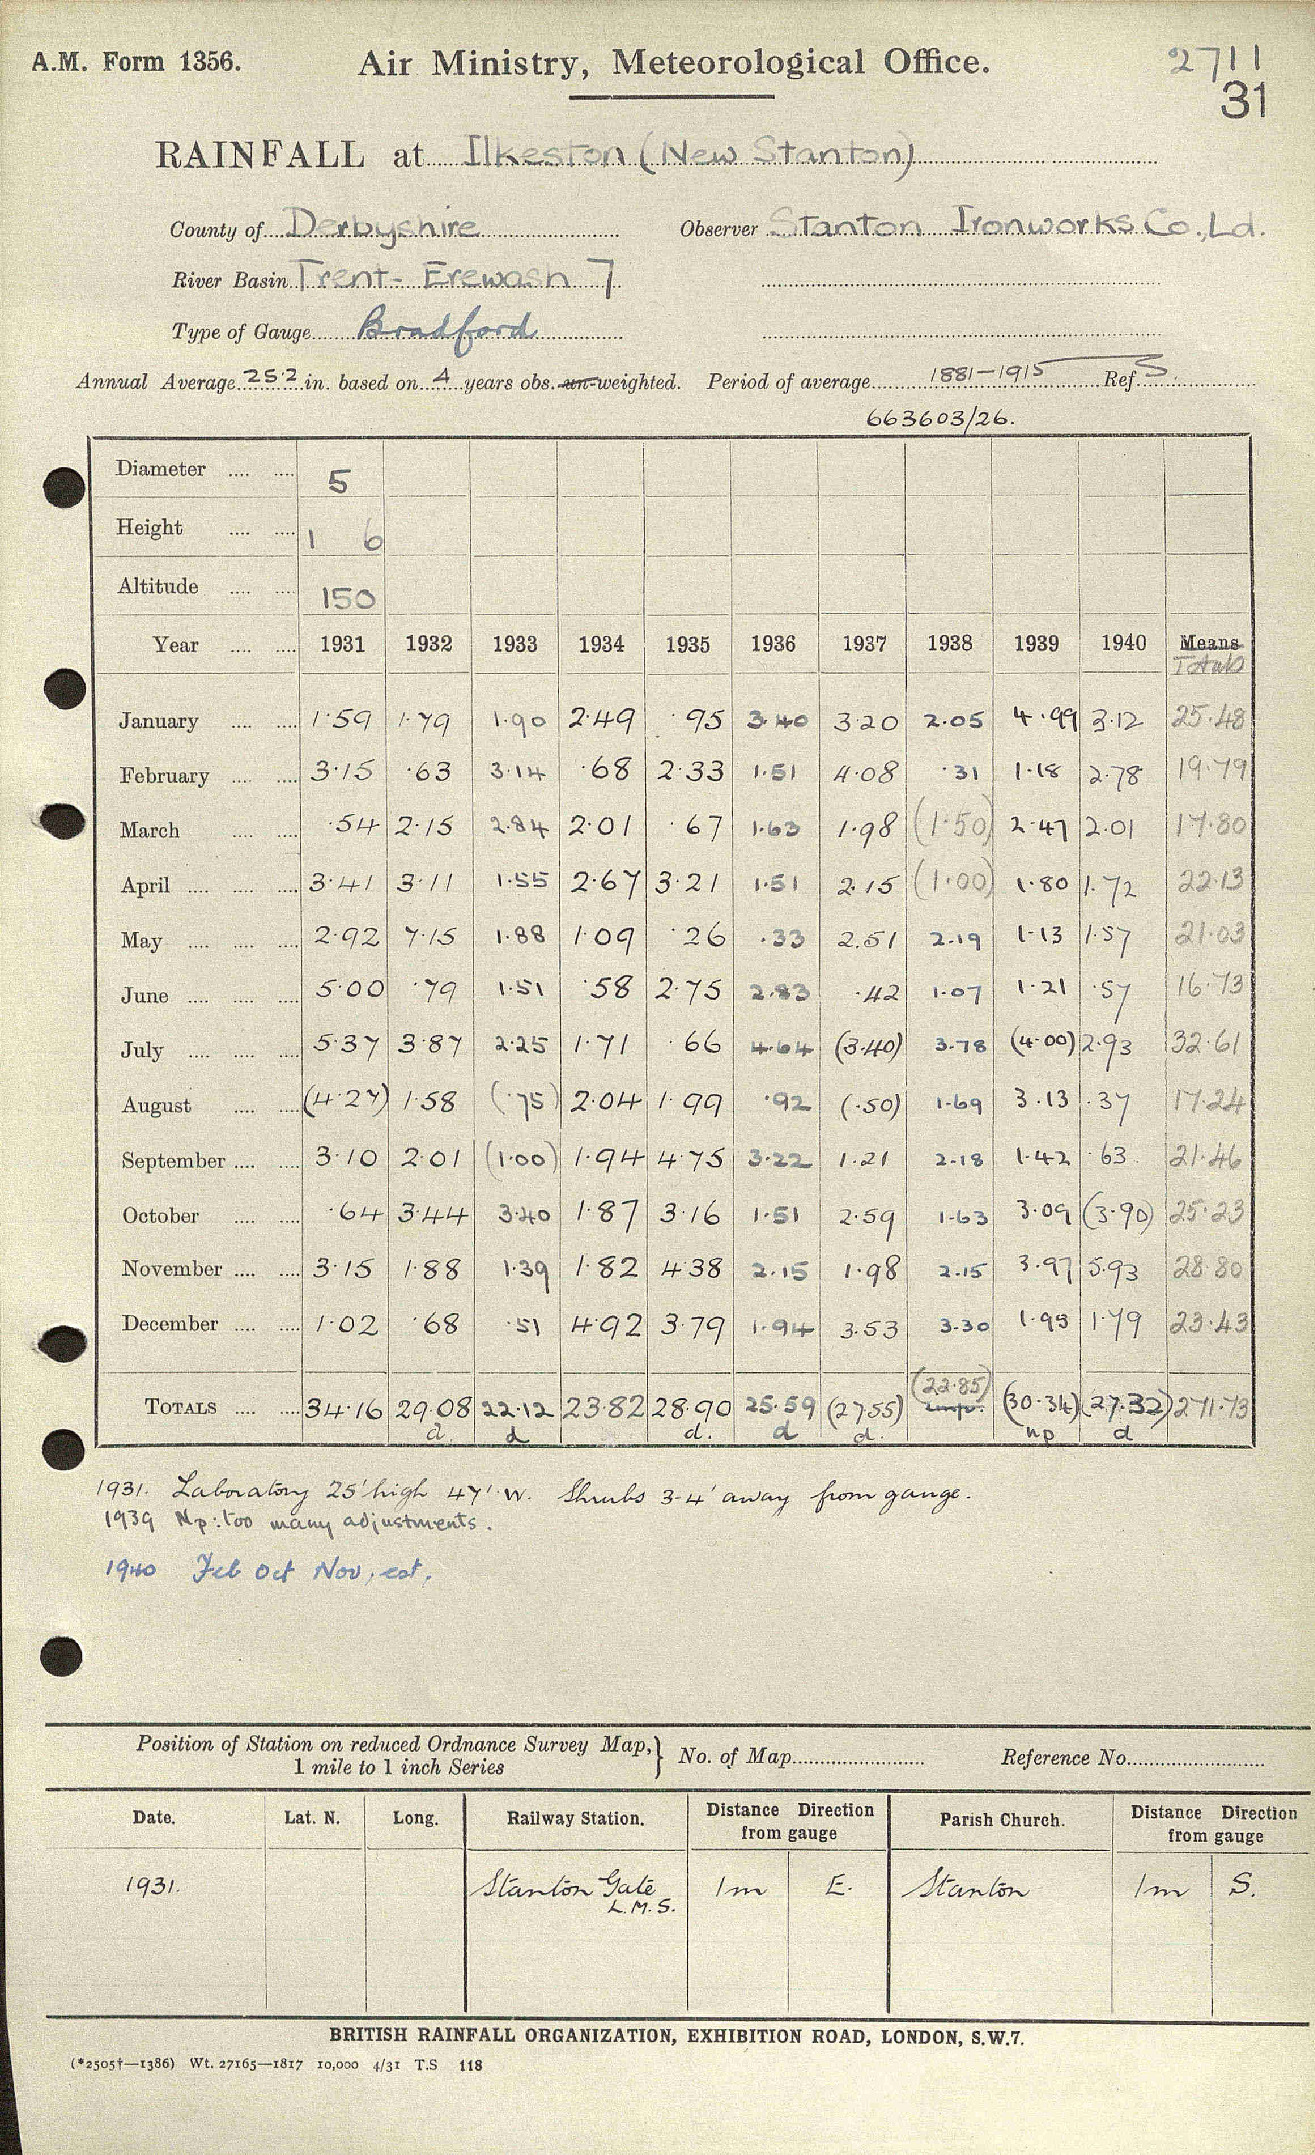 A.M. Form 1356. Air Ministry, Meteorological Office. 2711
31
RAINFALL at Ilkeston (New Stanton)
County of Derbyshire Observer Stanton Ironworks Co., Ld.
River Basin Trent - Erewash 7
Type of Gauge Bradford
Annual Average 25.2 in. based on 4 years obs. un-weighted. Period of average 1881-1915 Ref. S.
663603/26.
Diameter 5
Height 1 6
Altitude 150
Year 1931 1932 1933 1934 1935 1936 1937 1938 1939 1940 Means Totals
January 1.59 1.79 1.90 2.49 .95 3.40 3.20 2.05 4.99 3.12 25.48
February 3.15 .63 3.14 .68 2.33 1.51 4.08 .31 1.18 2.78 19.79
March .54 2.15 2.84 2.01 .67 1.63 1.98 (1.50) 2.47 2.01 17.80
April 3.41 3.11 1.55 2.67 3.21 1.51 2.15 (1.00) 1.80 1.72 22.13
May 2.92 7.15 1.88 1.09 .26 .33 2.51 2.19 1.13 1.57 21.03
June 5.00 .79 1.51 .58 2.75 2.83 .42 1.07 1.21 .57 16.73
July 5.37 3.87 2.25 1.71 .66 4.64 (3.40) 3.78 (4.00) 2.93 32.61
August (4.27) 1.58 (.75) 2.04 1.99 .92 (.50) 1.69 3.13 .37 17.24
September 3.10 2.01 (1.00) 1.94 4.75 3.22 1.21 2.18 1.42 .63 21.46
October .64 3.44 3.40 1.87 3.16 1.51 2.59 1.63 3.09 (3.90) 25.23
November 3.15 1.88 1.39 1.82 4.38 2.15 1.98 2.15 3.97 5.93 28.80
December 1.02 .68 .51 4.92 3.79 1.94 3.53 3.30 1.95 1.79 23.43
TOTALS 34.16 29.08 22.12 23.82 28.90 25.59 (27.55) (22.85) (30.34) (27.32) 271.73
d. d d. d d. np d
1931. Laboratory 25' high 47' W. Shrubs 3-4' away from gauge.
1939 Np: too many adjustments.
1940 Feb Oct Nov, est.
Position of Station on reduced Ordnance Survey Map, 1 mile to 1 inch Series } No. of Map Reference No.
Date. Lat. N. Long. Railway Station. Distance Direction from gauge Parish Church. Distance Direction from gauge
1931. Stanton Gate L.M.S. 1m E. Stanton 1m S.
BRITISH RAINFALL ORGANIZATION, EXHIBITION ROAD, LONDON, S.W.7.
(*2505†—1386) Wt. 27165—1817 10,000 4/31 T.S 118